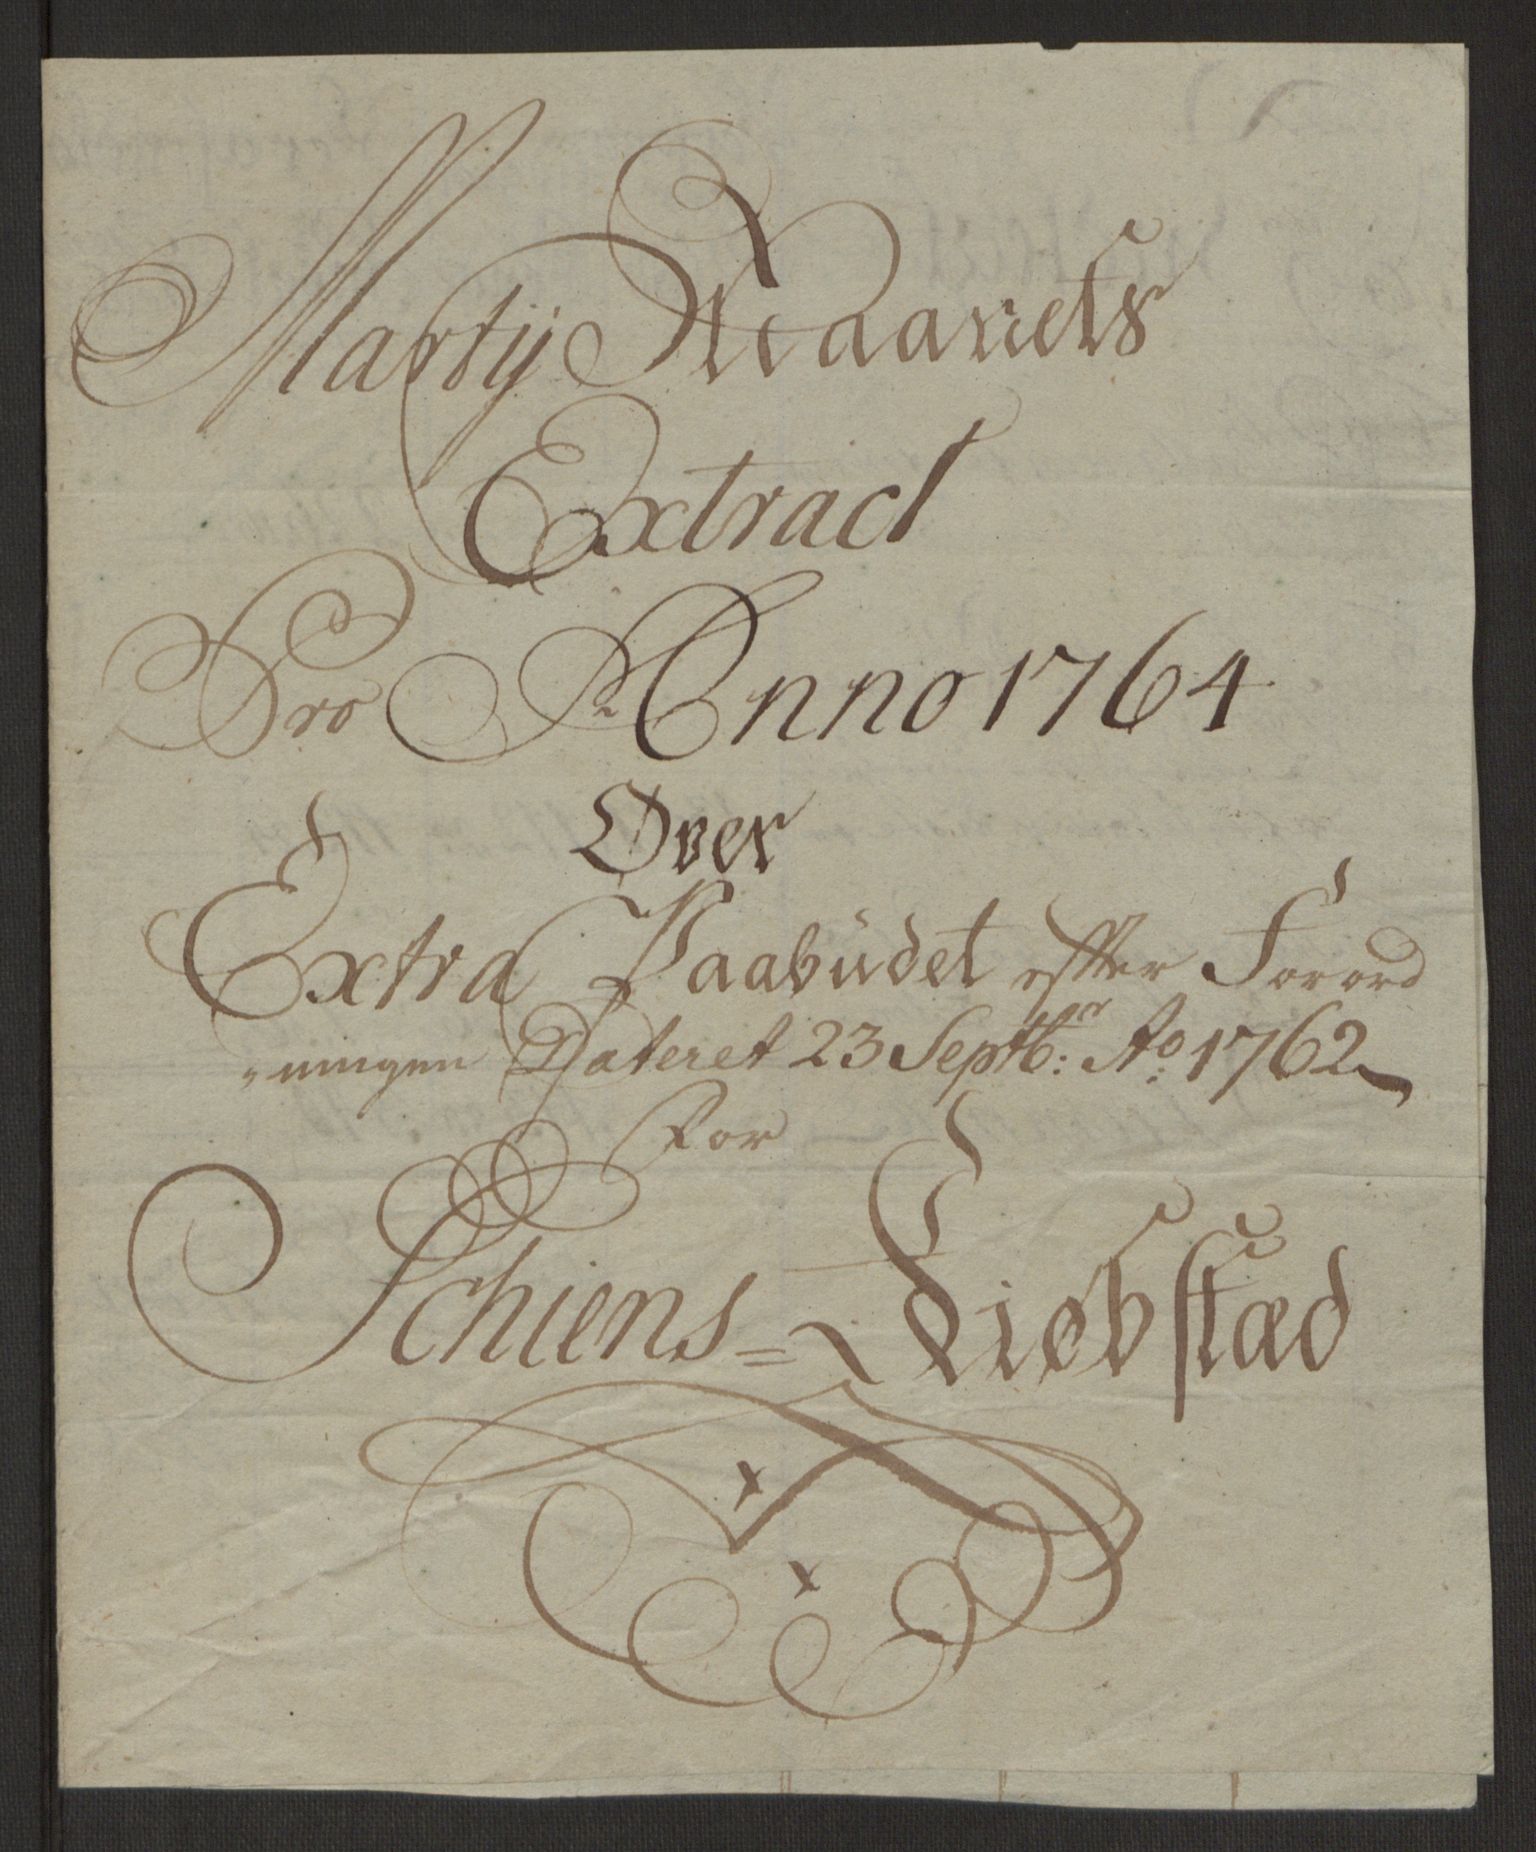 Martij Maanets
Extract
Pro Anno 1764
Over
Extra Paabùdet efter Forord
„ningen Dateret 23 Septbr: Ao: 1762
For
Schiens=Kiøbstæd